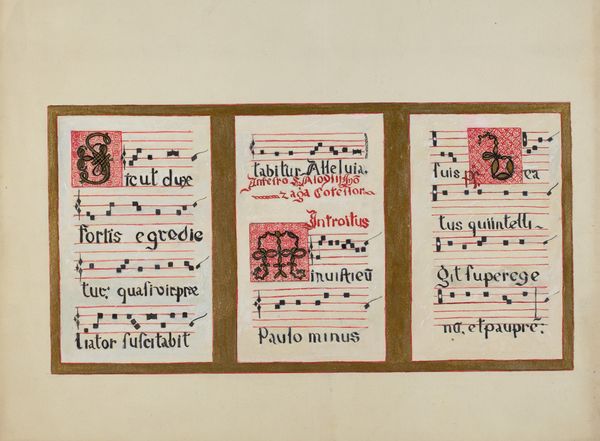 Sicut dux
fortis egredie
tur: quasi vir præ
liator suscitabit
tabitur Alleluia.
zaga Cofessor
Introitus
Minuisti eũ
Paulo minus
suis ps. Bea
tus qui intelli-
git super ege
nũ, et paupre: